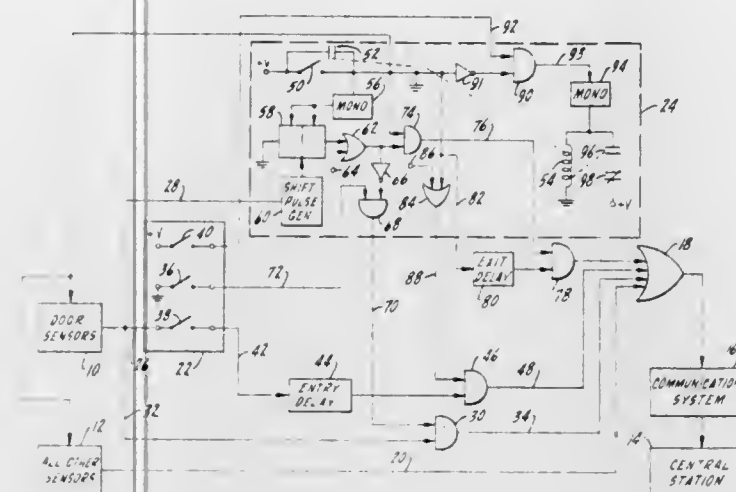 92
+V
52
50
56
MONO
91
90
93
94
MONO
24
58
62
74
76
54
96
98
64
66
86
28
SHIFT
PULSE
GEN
60
68
84
82
+V
+V
40
36
38
72
22
88
EXIT
DELAY
80
78
18
DOOR
SENSORS
10
26
42
70
44
ENTRY
DELAY
46
48
16
COMMUNICATION
SYSTEM
32
30
34
12
ALL OTHER
SENSORS
20
14
CENTRAL
STATION